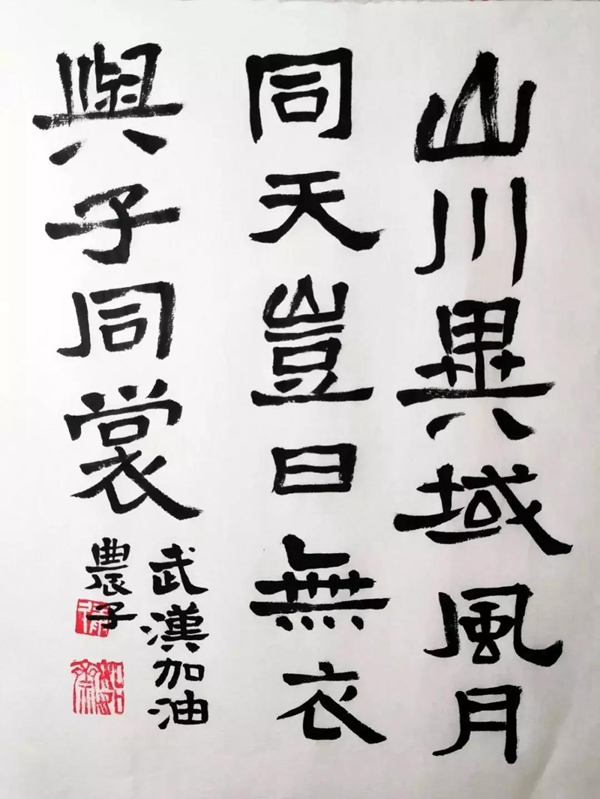 山川異域風月
同天豈曰無衣
與子同裳
武漢加油
農子